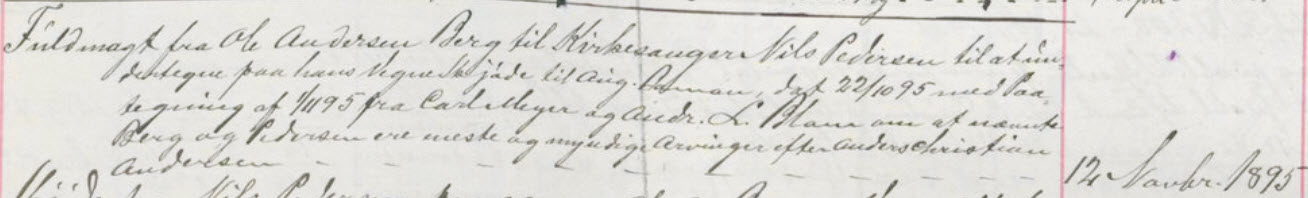 Fuldmagt fra Ole Andersen Berg til Kirkesanger Nils Pedersen til at un-
dertegne paa hans Vegne Skjøde til Aug. dat 22/10 95 med Paa-
tegning af 1/11 95 fra Carl Meyer og Andr. L. Blom om at nævnte
Berg og Pedersen ere næste og myndige Arvinger efter Anders Christian
Andersen - - - - - - - - - -
12 Novbr. 1895
Nils Pedersen